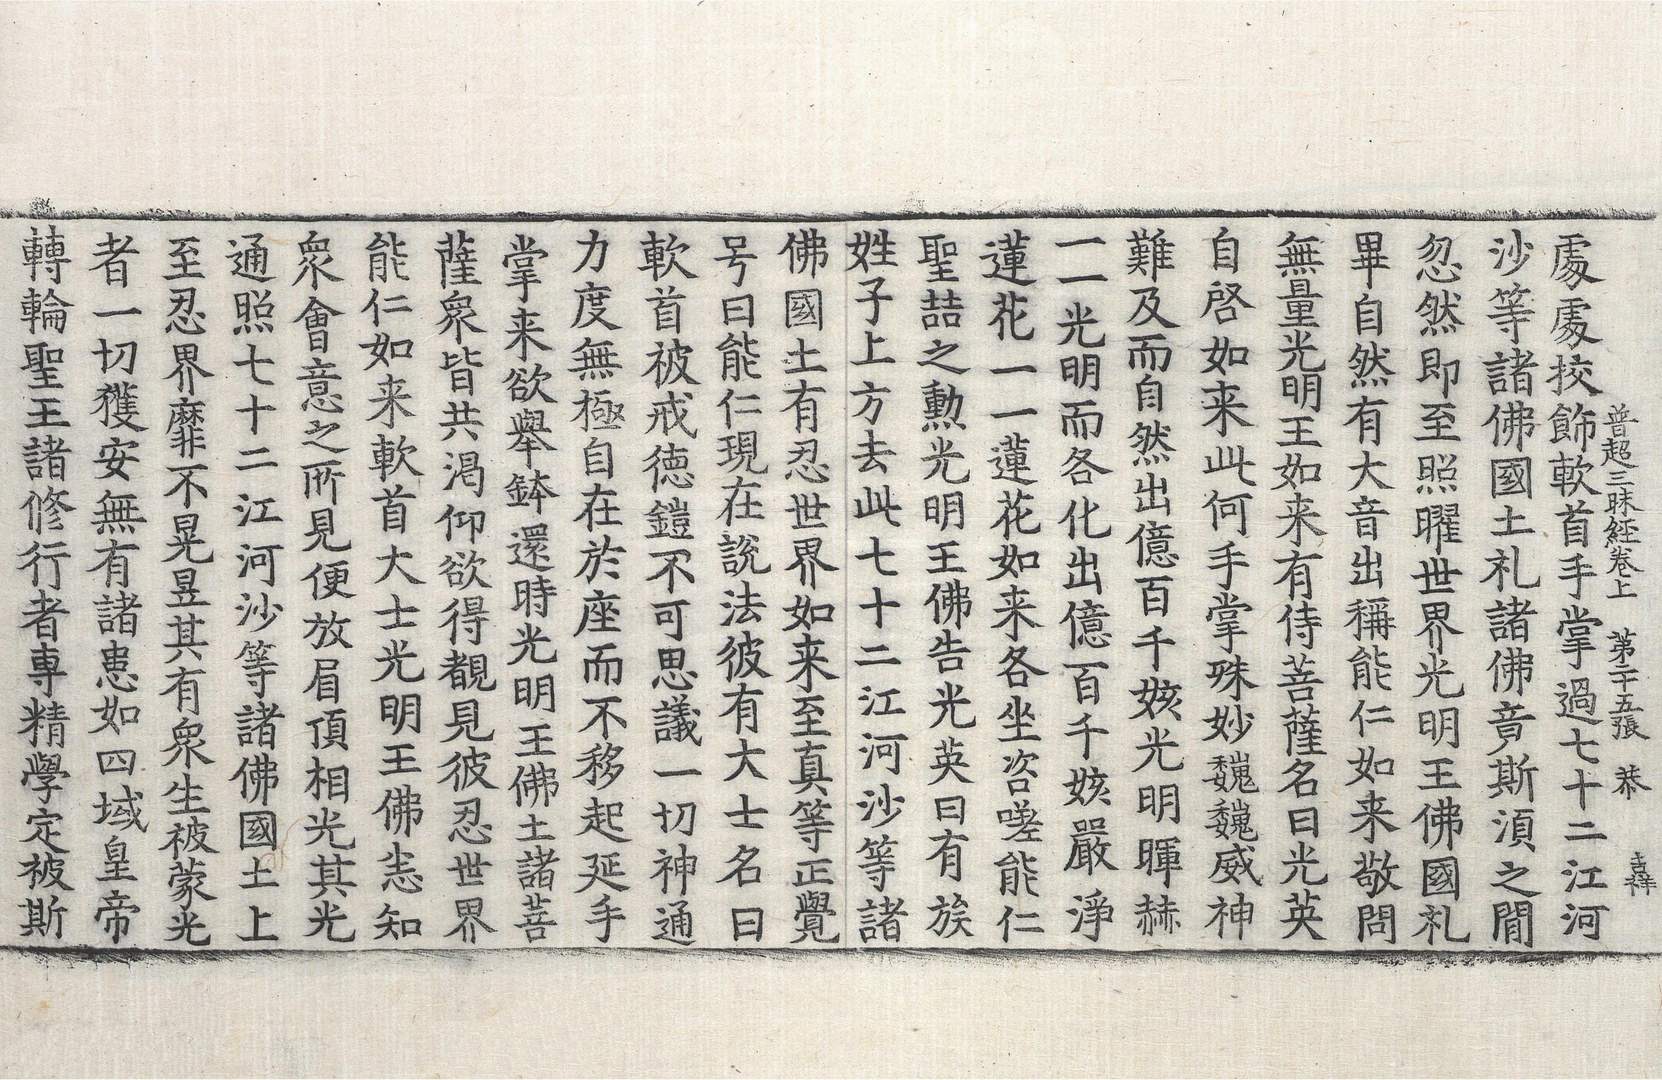 普超三昧経卷上　第二十五張　恭　吉祥
處處挍飾軟首手掌過七十二江河
沙等諸佛國土礼諸佛竟斯湏之間
忽然即至照曜世界光明王佛國礼
畢自然有大音出稱能仁如来敬問
無量光明王如来有侍菩薩名曰光英
自啓如来此何手掌殊妙巍巍威神
難及而自然出億百千姟光明暉赫
一一光明而各化出億百千姟嚴淨
蓮花一一蓮花如来各坐咨嗟能仁
聖喆之勲光明王佛告光英曰有族
姓子上方去此七十二江河沙等諸
佛國土有忍世界如来至真等正覺
号曰能仁現在說法彼有大士名曰
軟首被戒徳鎧不可思議一切神通
力度無極自在於座而不移起延手
掌来欲舉鉢還時光明王佛土諸菩
薩衆皆共渇仰欲得覩見彼忍世界
能仁如来軟首大士光明王佛悉知
衆會意之所見便放眉頂相光其光
通照七十二江河沙等諸佛國土上
至忍界靡不晃昱其有衆生被蒙光
者一切獲安無有諸患如四域皇帝
轉輪聖王諸修行者專精學定被斯